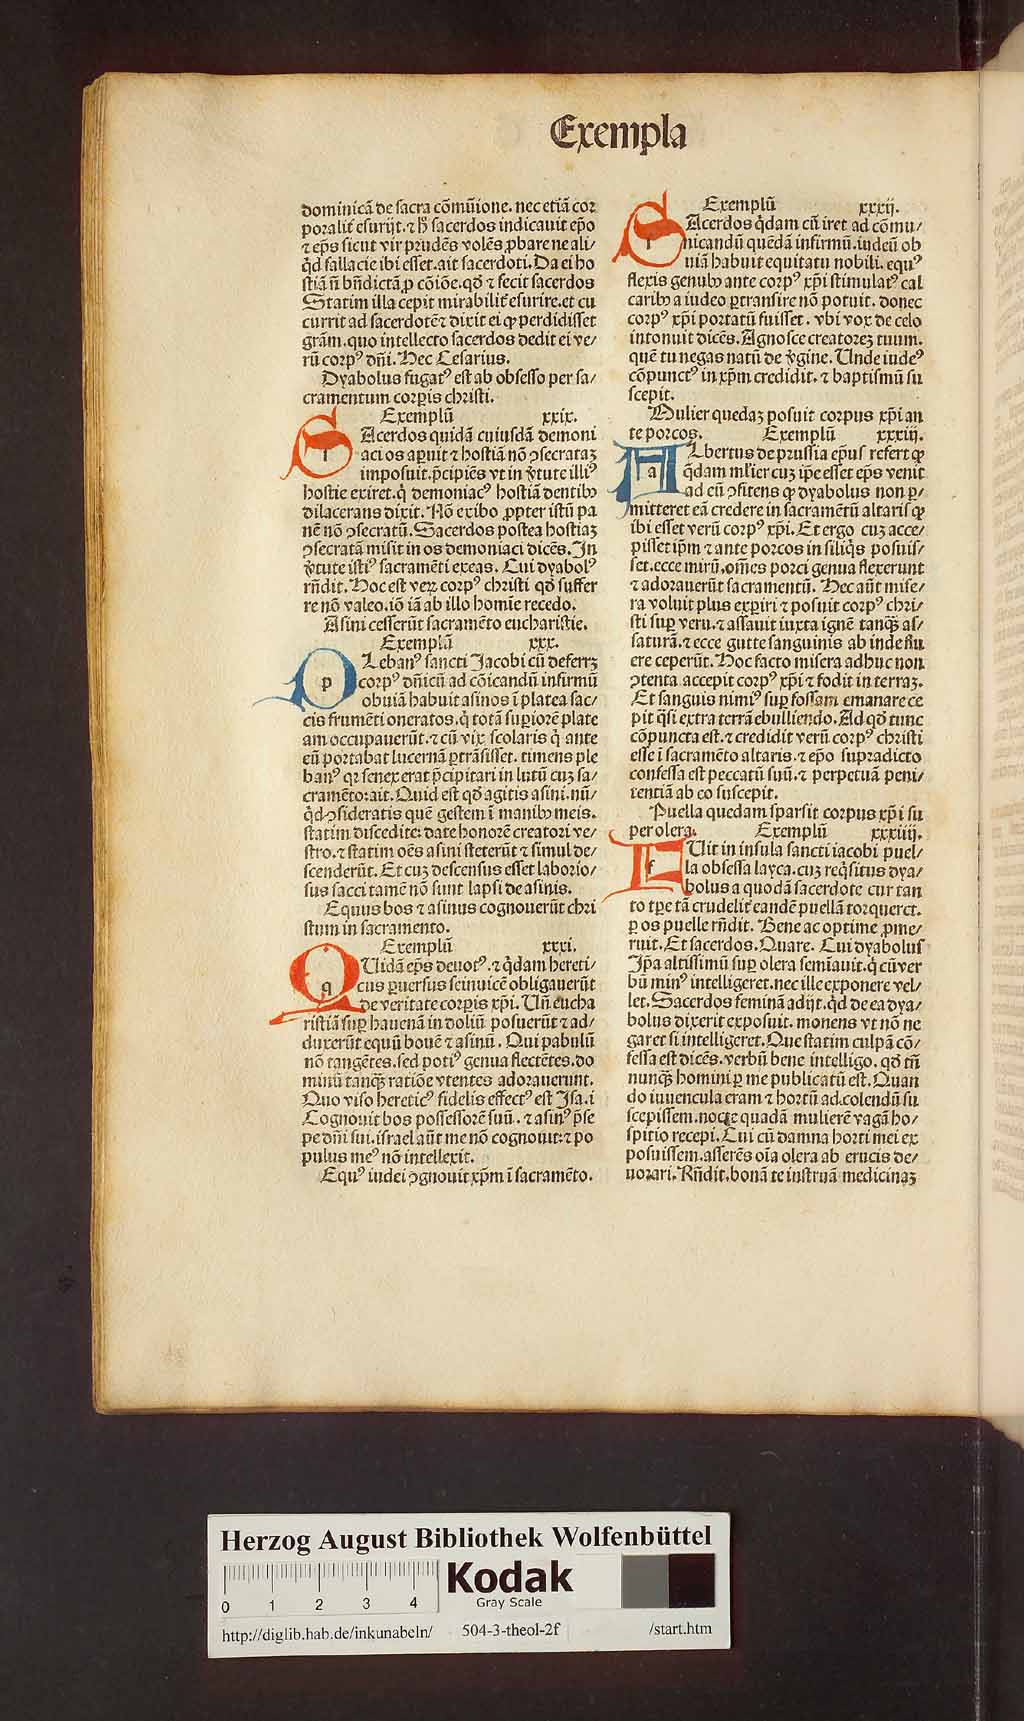 Exempla
dominicā de sacra cōmūione. nec etiā cor
poralit̄ esurijt. ⁊ hͦ sacerdos indicauit ep̄o
⁊ ep̄s sicut vir prudēs volēs ꝓbare ne ali/
q̇d fallacie ibi esset. ait sacerdoti. Da ei ho
stiā nō bn̄dictā ꝓ cōiōe. qd̄ ⁊ fecit sacerdos
Statim illa cepit mirabilit̄ esurire. et cu
currit ad sacerdotē ⁊ dixit ei ꝙ perdidisset
grām. quo intellecto sacerdos dedit ei ve/
rū corpꝰ dn̄i. Hec Cesarius.
Dyabolus fugatꝰ est ab obsesso per sa/
cramentum corpꝑis christi.
Exemplū xxix.
SAcerdos quidā cuiusdā demoni
aci os aꝑuit ⁊ hostiā nō ꝯsecrataꝫ
imposuit. p̄cipiēs vt in v̄tute illiꝰ
hostie exiret. q̇ demoniacꝰ hostiā dentibꝰ
dilacerans dixit. Nō exibo ꝓpter istū pa
nē nō ꝯsecratū. Sacerdos postea hostiaꝫ
ꝯsecratā misit in os demoniaci dicēs. In
v̄tute istiꝰ sacramēti exeas. Cui dyabolꝰ
rn̄dit. Hoc est verꝫ corpꝰ christi qd̄ suffer
re nō valeo. iō iā ab illo homīe recedo.
Asini cesserūt sacramēto eucharistie.
Exemplū xxx.
PLebanꝰ sancti Jacobi cū deferrꝫ
corpꝰ dn̄icū ad cōicandū infirmū
obuiā habuit asinos ī platea sac/
cis frumēti oneratos. q̇ totā suꝑiorē plate
am occupauerūt. ⁊ cū vix scolaris q̇ ante
eū portabat lucernā ꝑtrāsisset. timens ple
banꝰ qꝛ senex erat p̄cipitari in lutū cuꝫ sa/
cramēto: ait. Quid est qd̄ agitis asini. nū/
q̇d ꝯsideratis quē gestem ī manibꝰ meis.
statim discedite: date honorē creatori ve/
stro. ⁊ statim oēs asini steterūt ⁊ simul de/
scenderūt. Et cuꝫ descensus esset laborio/
sus sacci tamē nō sunt lapsi de asinis.
Equus bos ⁊ asinus cognouerūt chri
stum in sacramento.
Exemplū xxxi.
QUidā ep̄s deuotꝰ. ⁊ q̇dam hereti/
cus ꝑuersus seinuicē obligauerūt
de veritate corpꝑis xp̄i. Un̄ eucha
ristiā suꝑ hauenā in doliū posuerūt ⁊ ad/
duxerūt equū bouē ⁊ asinū. Qui pabulū
nō tangētes. sed potiꝰ genua flectētes. do
minū tanꝙ̄ ratiōe vtentes adorauerunt.
Quo viso hereticꝰ fidelis effectꝰ est Jsa. i
Cognouit bos possessorē suū. ⁊ asinꝰ p̄se
pe dn̄i sui. israel aūt me nō cognouit: ⁊ po
pulus meꝰ nō intellexit.
Equꝰ iudei ꝯgnouit xp̄m ī sacramēto.
Exemplū xxxij.
SAcerdos q̇dam cū iret ad cōmu/
nicandū quēdā infirmū. iudeū ob
uiā habuit equitatu nobili. equꝰ
flexis genubꝰ ante corpꝰ xp̄i stimulatꝰ cal
caribꝰ a iudeo ꝑtransire nō potuit. donec
corpꝰ xp̄i portatū fuisset. vbi vox de celo
intonuit dicēs. Agnosce creatoreꝫ tuum.
quē tu negas natū de v̄gine. Unde iudeꝰ
cōpunctꝰ in xp̄m credidit. ⁊ baptismū su
scepit.
Mulier quedaꝫ posuit corpus xp̄i an
te porcos. Exemplū xxxiij.
ALbertus de prussia ep̄us refert ꝙ
q̇dam mlier cuꝫ ip̄e esset ep̄s venit
ad eū ꝯfitens ꝙ dyabolus non ꝑ/
mitteret eā credere in sacramētū altaris ꝙ
ibi esset verū corpꝰ xp̄i. Et ergo cuꝫ acce/
pisset ip̄m ⁊ ante porcos in siliq̇s posuis/
set. ecce mirū. om̄es porci genua flexerunt
⁊ adorauerūt sacramentū. Hec aūt mise/
ra voluit plus exꝑiri ⁊ posuit corpꝰ chri/
sti suꝑ veru. ⁊ assauit iuxta ignē tanꝙ̄ as/
saturā. ⁊ ecce gutte sanguinis ab inde flu
ere ceperūt. Hoc facto misera adhuc non
ꝯtenta. accepit corpꝰ xp̄i ⁊ fodit in terraꝫ.
Et sanguis nimiꝰ suꝑ fossam emanare ce
pit q̇si extra terrā ebulliendo. Ad qd̄ tunc
cōpuncta est. ⁊ credidit verū corpꝰ christi
esse ī sacramēto altaris. ⁊ ep̄o supradicto
confessa est peccatū suū. ⁊ perpetuā peni/
tentiā ab eo suscepit.
Puella quedam sparsit corpus xp̄i su
per olera. Exemplū xxxiiij.
FUit in insula sancti iacobi puel/
la obsessa layca. cuꝫ req̇situs dya/
bolus a quodā sacerdote cur tan
to tꝑe tā crudelit̄ eandē puellā torqueret.
ꝑ os puelle rn̄dit. Bene ac optime ꝓme/
ruit. Et sacerdos. Quare. Cui dyabolus
Jp̄a altissimū suꝑ olera semīauit. q̇ cū ver
bū minꝰ intelligeret. nec ille exponere vel/
let. Sacerdos feminā adijt. q̇d de ea dya/
bolus dixerit exposuit. monens vt nō ne
garet si intelligeret. Que statim culpā cō/
fessa est dicēs. verbū bene intelligo. qd̄ tn̄
nunꝙ̄ homini ꝑ me publicatū est. Quan
do iuuencula eram ⁊ hortū ad colendū su
scepissem. nocte quadā mulierē vagā ho/
spitio recepi. Cui cū damna horti mei ex
posuissem. asserēs oīa olera ab erucis de/
uorari. Rn̄dit. bonā te instruā medicinaꝫ
Herzog August Bibliothek Wolfenbüttel
0 1 2 3 4
Kodak
Gray Scale
http://diglib.hab.de/inkunabeln/ 504-3-theol-2f /start.htm